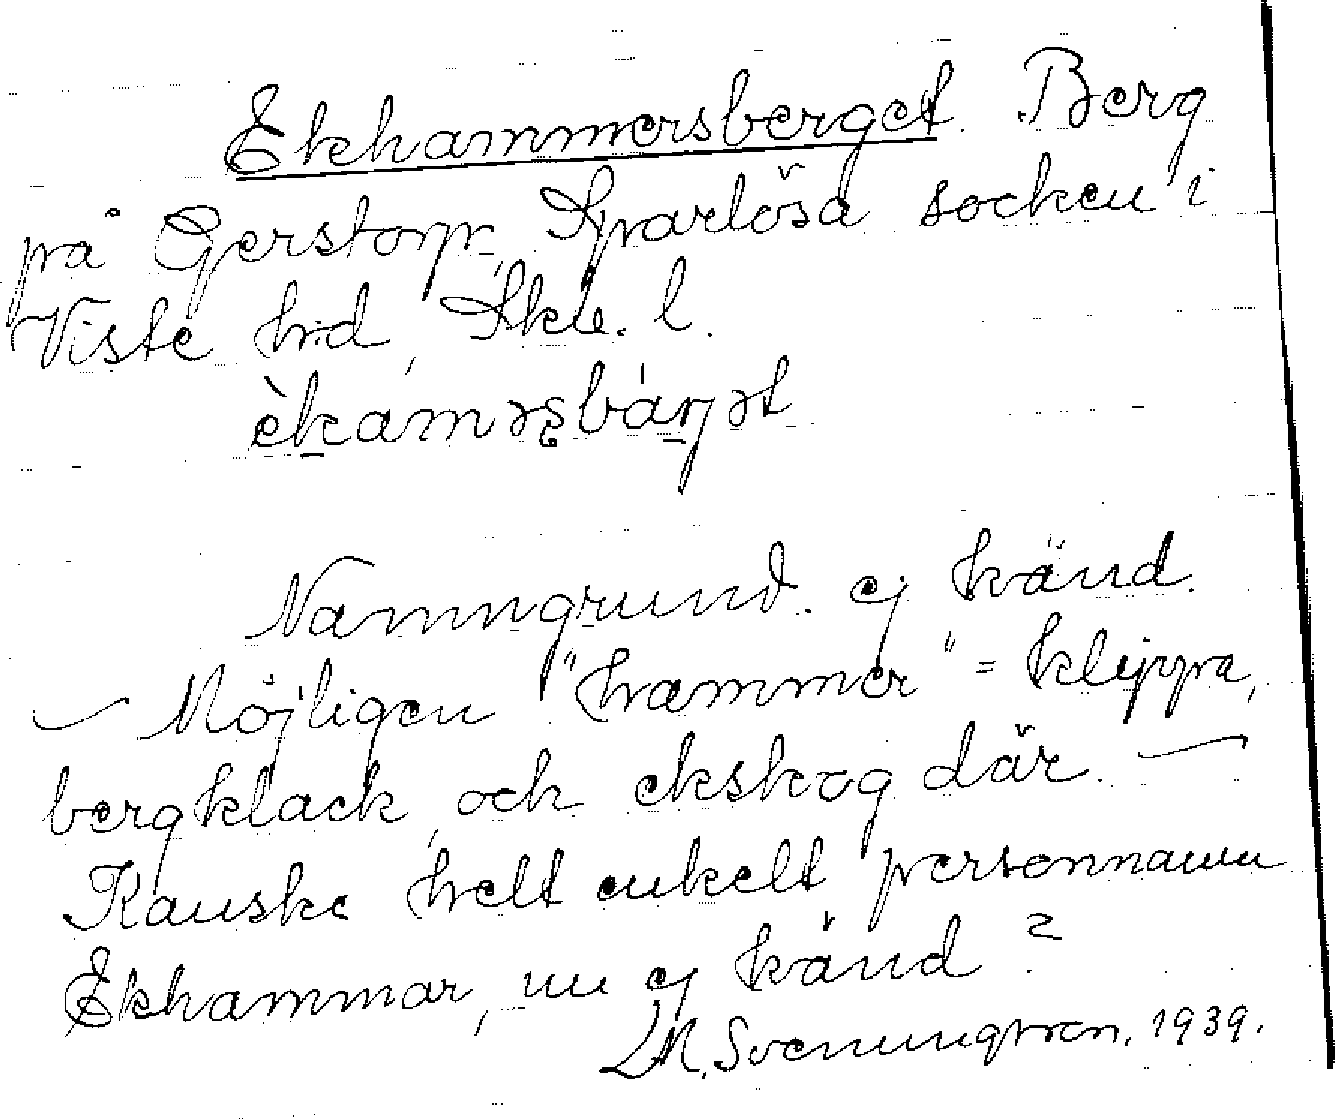 Ekhammersberget. Berg
på Gerstorp, Sparlösa socken i
Viste hd, Skbr. l.
èkamǝʂbárjǝt
Namngrund ej känd.
— Möjligen "hammer" = klippa,
bergklack, och ekskog där. —
Kanske helt enkelt personnamn
Ekhammar, nu ej känd?
M. Svenungsson. 1939.